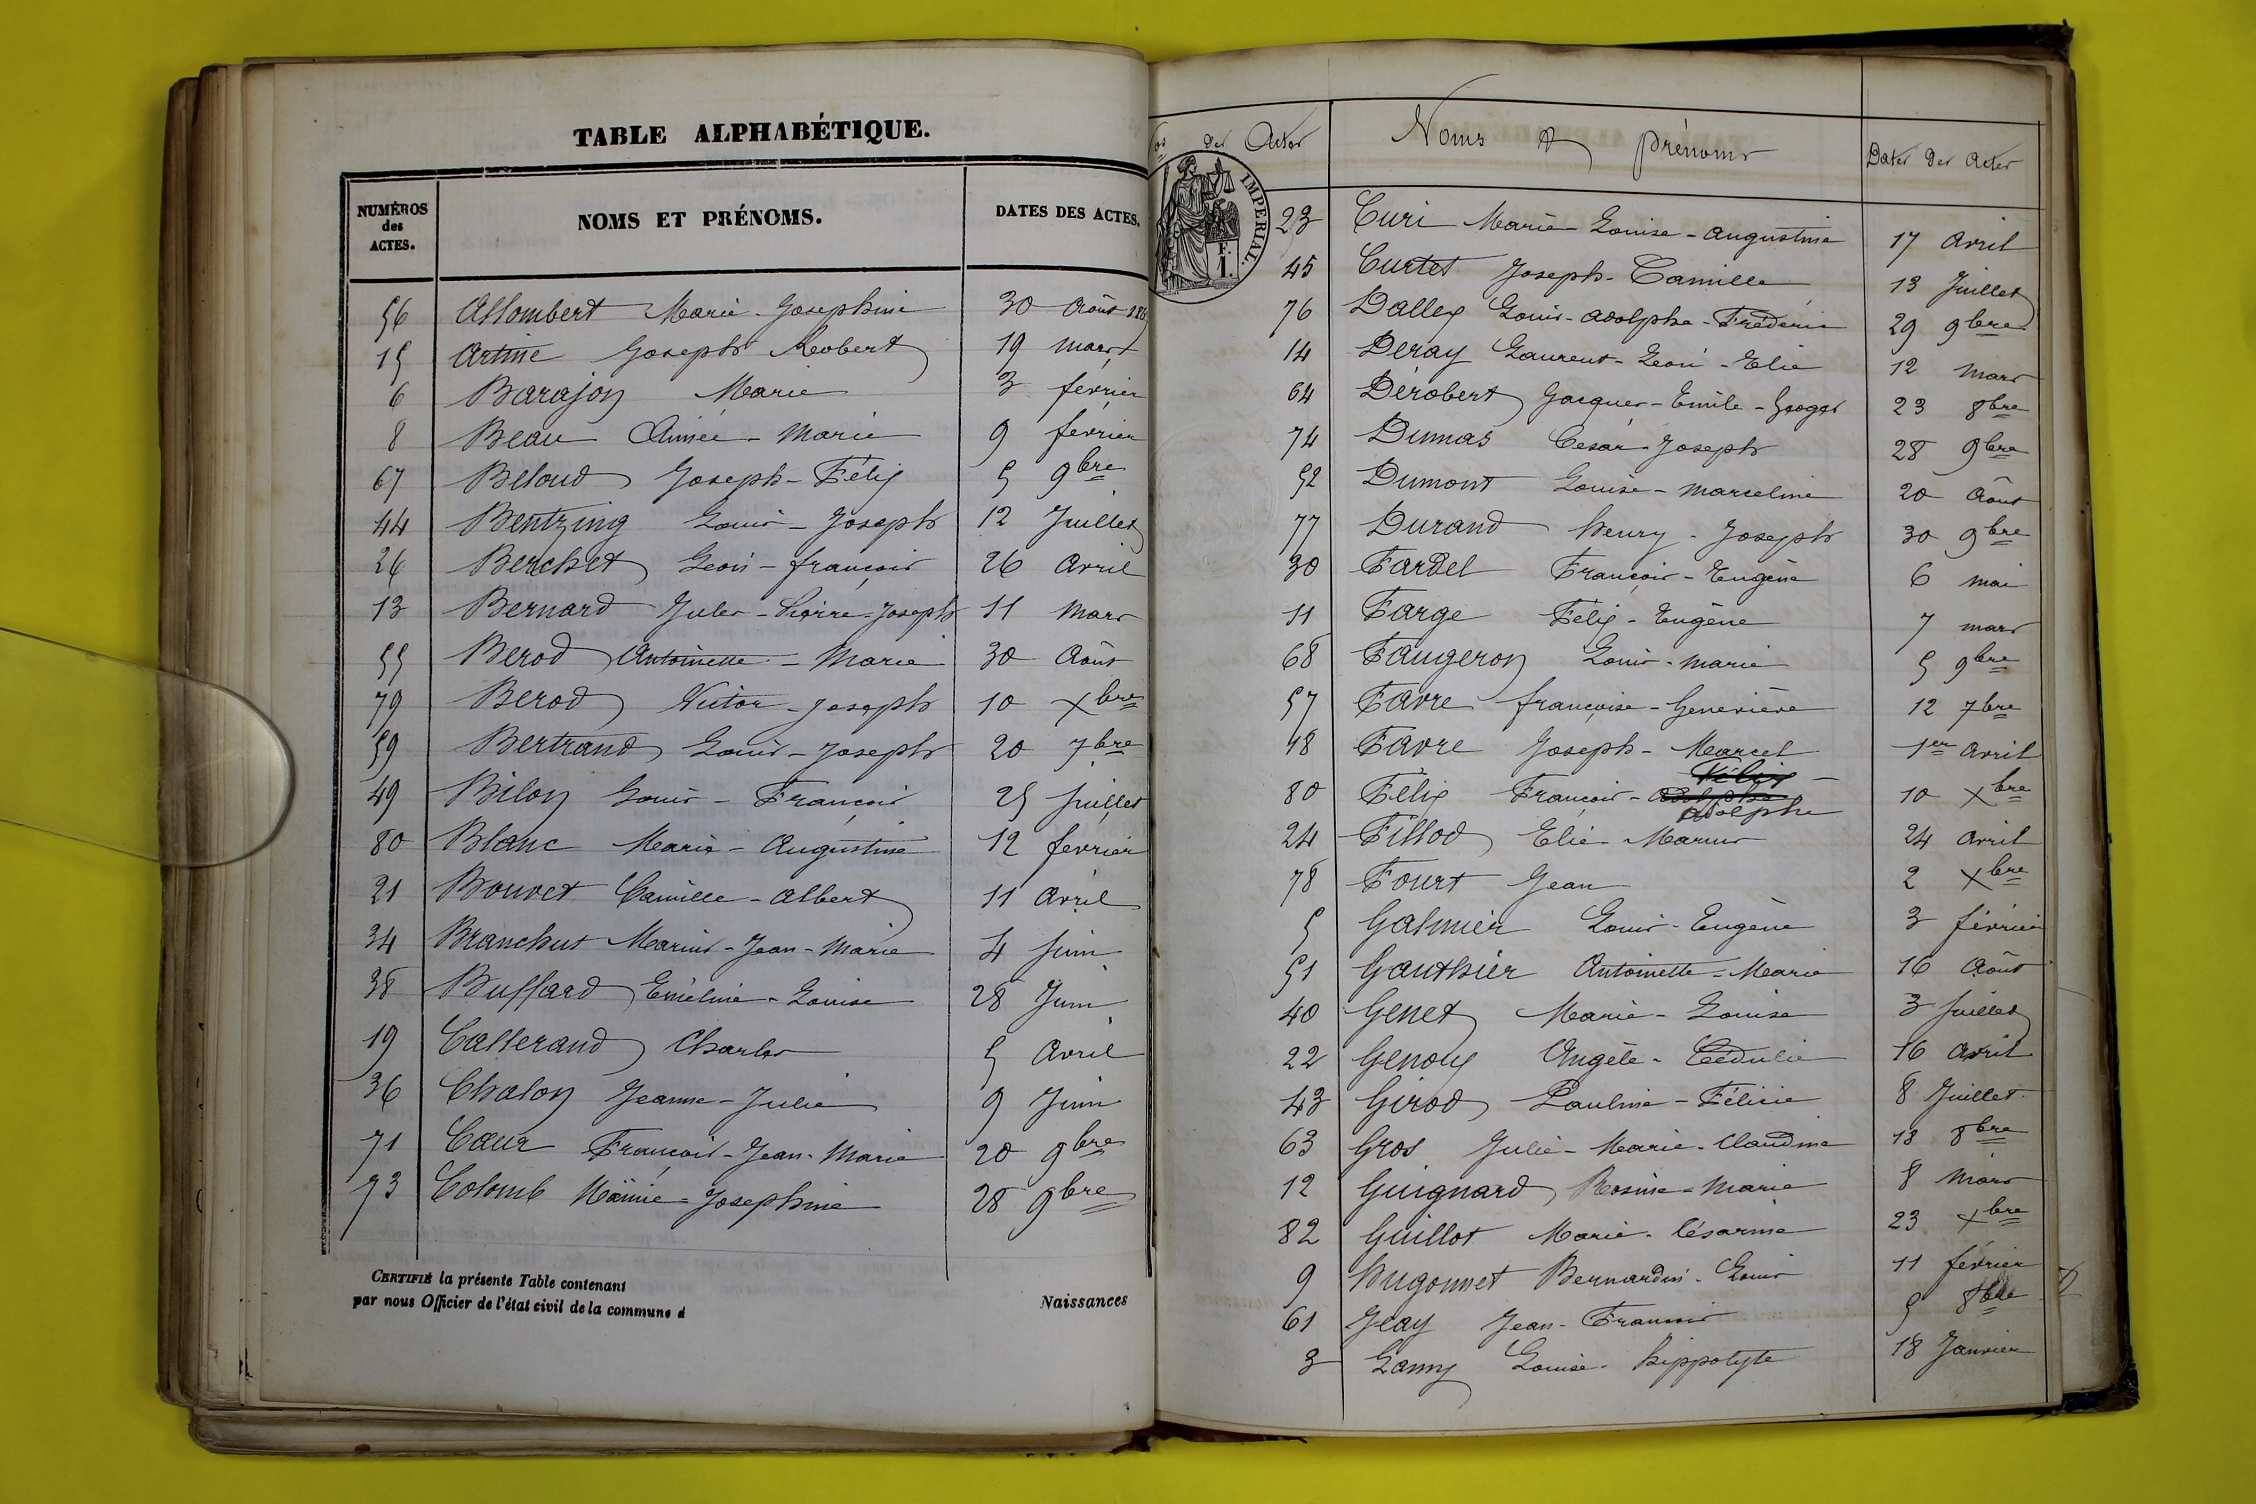 TABLE ALPHABÉTIQUE.
NUMÉROS des ACTES. NOMS ET PRÉNOMS. DATES DES ACTES.
56 Allombert Marie-Josephine 30 Août
15 Artine Joseph Robert 19 mars
6 Barajon Marie 3 février
8 Beau Aimée-Marie 9 février
67 Beloud Joseph-Félix 5 9bre
44 Bentzing Louis-Joseph 12 Juillet
26 Berchet Léon-françois 26 Avril
13 Bernard Jules-Pierre-Joseph 11 Mars
55 Berod Antoinette-Marie 30 Août
79 Berod Victor-Joseph 10 Xbre
59 Bertrand Louis-Joseph 20 7bre
49 Bilon Louis-François 25 Juillet
80 Blanc Marie-Augustine 12 février
21 Bouvet Camille-Albert 11 Avril
34 Branchut Marius-Jean-Marie 4 Juin
38 Buffard Emeline-Louise 28 Juin
19 Callerand Charles 5 Avril
36 Chalon Jeanne-Julie 9 Juin
71 Cœur François-Jean-Marie 20 9bre
73 Colomb Josephine 28 9bre
CERTIFIÉ la présente Table contenant Naissances
par nous Officier de l'état civil de la commune d
Nos des Actes Noms & prénoms Dates des Actes
IMPERIAL.
E.
I.
23 Curi Marie-Louise-Augustine 17 Avril
45 Curtet Joseph-Camille 13 Juillet
76 Dalley Louis-Adolphe-Fréderic 29 9bre
14 Deray Laurent-Léon-Elie 12 Mars
64 Dérobert Jacques-Emile 23 8bre
74 Dumas César-Joseph 28 9bre
52 Dumont Louise-Marceline 20 Août
77 Durand henry-Joseph 30 9bre
30 Fardel François-Eugène 6 mai
11 Farge Félix-Eugène 7 mars
68 Faugeron Louis-Marie 5 9bre
57 Favre françoise-Geneviève 12 7bre
18 Favre Joseph-Marcel 1er Avril
Félix
80 Félix François-Adolphe 10 Xbre
Adolphe
24 Fillod Elie-Marius 24 Avril
78 Fourt Jean 2 Xbre
5 Galmier Louis-Eugène 3 février
51 Gauthier Antoinette-Marie 16 Août
40 Genet Marie-Louise 3 Juillet
22 Genoux Angèle 16 Avril
43 Girod Pauline-Félicie 8 Juillet
63 Gros Julie-Marie-Claudine 18 8bre
12 Guignard Rosine-Marie 8 Mars
82 Guillot Marie-Césarine 23 Xbre
9 hugonnet Bernardin-Louis 11 février
61 Jeay Jean-François 5 8bre
3 Lanny Louise-hippolyte 18 Janvier